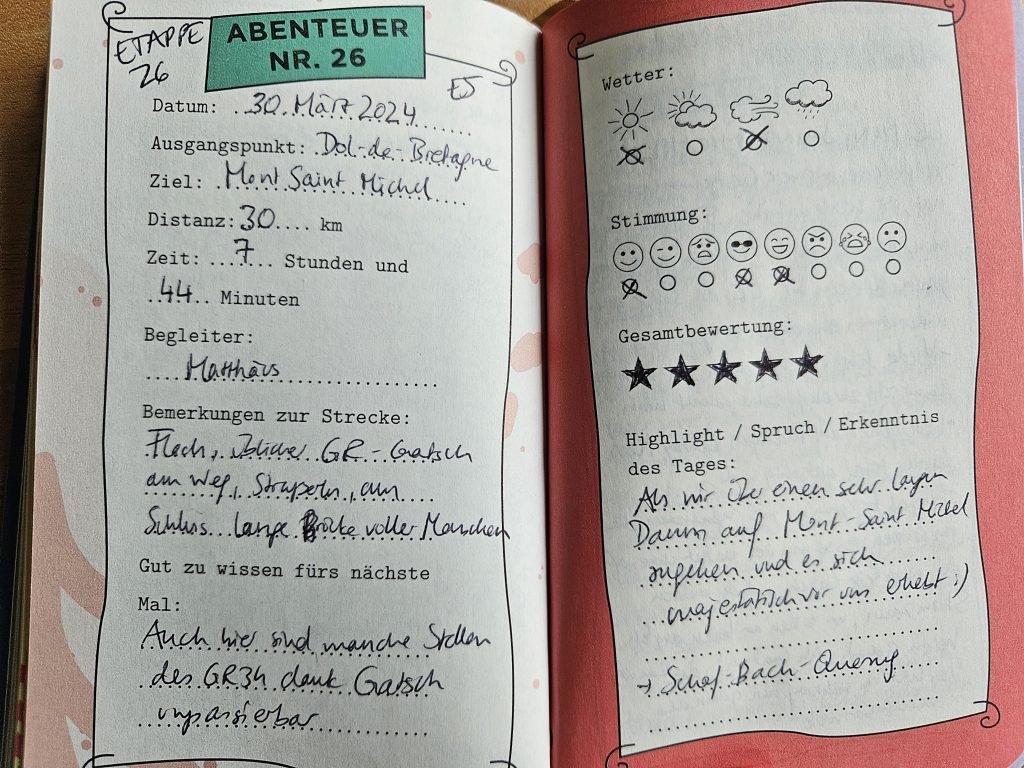 ETAPPE
26
ABENTEUER
NR. 26
Datum: 30. März 2024
Ausgangspunkt: Dol-de-Bretagne
Ziel: Mont Saint Michel
Distanz: 30 km
Zeit: 7 Stunden und
44 Minuten
Begleiter:
Matthäus
Bemerkungen zur Strecke:
Flach, üblicher GR-Gatsch
am Weg, Straßen, am
Schluss lange Brücke voller Menschen
Gut zu wissen fürs nächste
Mal:
Auch hier sind manche Stellen
des GR34 dank Gatsch
unpassierbar
Wetter:
Stimmung:
Gesamtbewertung:
Highlight / Spruch / Erkenntnis
des Tages:
Als wir über einen sehr langen
Damm auf Mont-Saint Michel
zugehen und es sich
majestätisch vor uns erhebt :)
→ Schaf-Bach-Querung